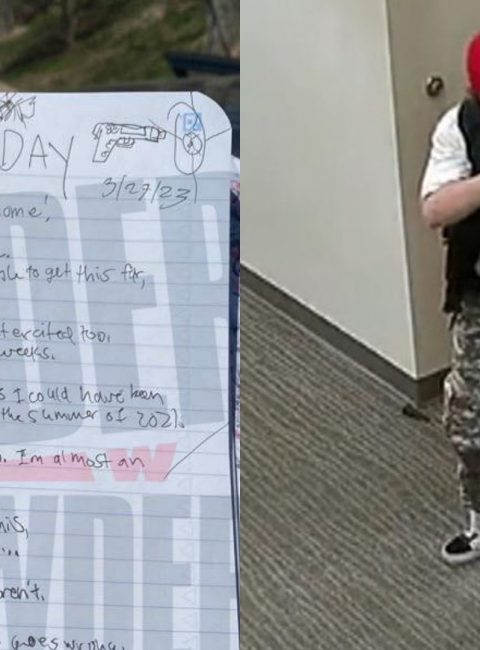 DAY
3/27/23
ome,
le to get this far,
t excited too.
weeks.
s I could have been
the summer of 2021.
. Im almost an
his,
...
ren't.
goes wrong.
DER
W
WDER